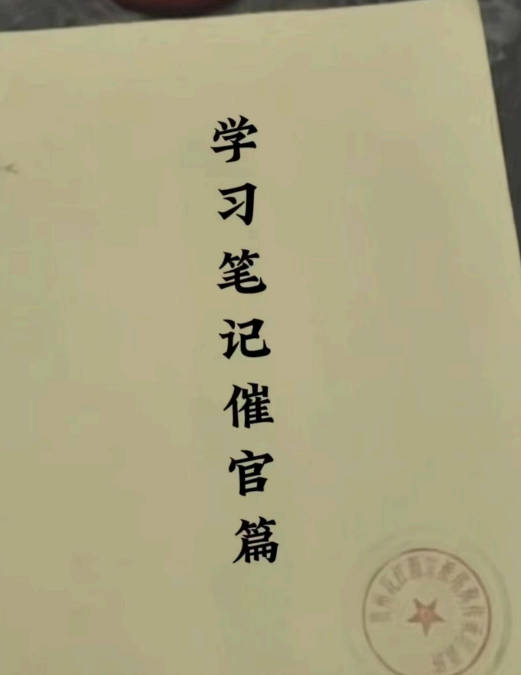 学习笔记催官篇